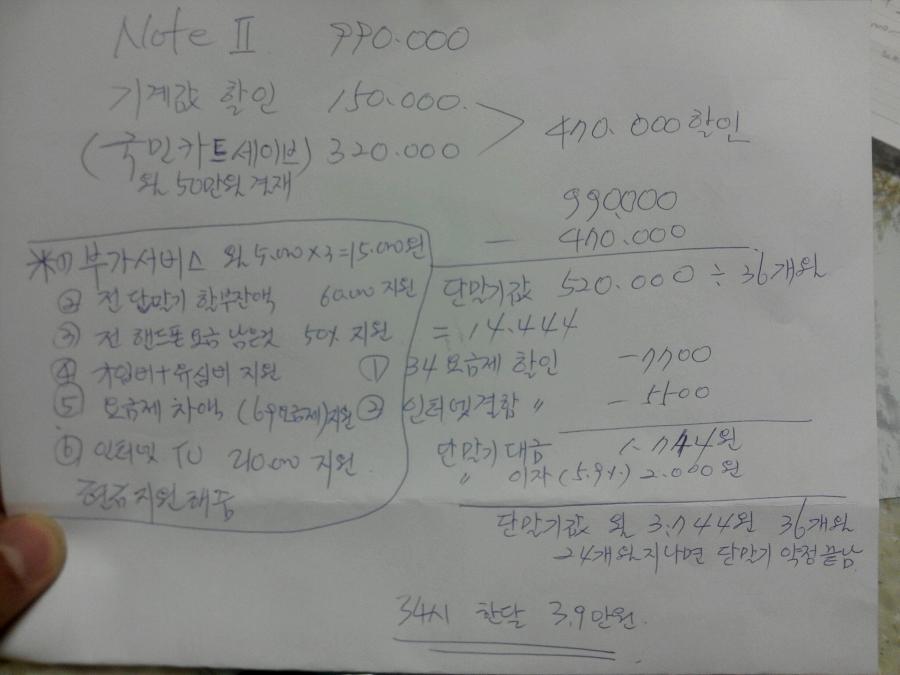 Note II 990.000
기계값 할인 150.000.
(국민카드세이브) 320.000
월 50만원 결재
470.000 할인
990.000
- 470.000
단말기값 520.000 ÷ 36개월
= 14.444
① 34 요금제 할인 -7700
② 인터넷결합 〃 -5500
단말기대금 1.744원
〃 이자 (5.9%) 2.000원
단말기값 월 3.744원 36개월
24개월지나면 단말기 약정끝남
*① 부가서비스 월 5.000×3=15.000원
② 전 단말기 할부잔액 60.000 지원
③ 전 핸드폰 요금 남은것 50% 지원
④ 가입비+유심비 지원
⑤ 요금제 차액 (69요금제)지원
⑥ 인터넷 TV 210.000 지원.
현금지원해줌
34시 한달 3.9만원.